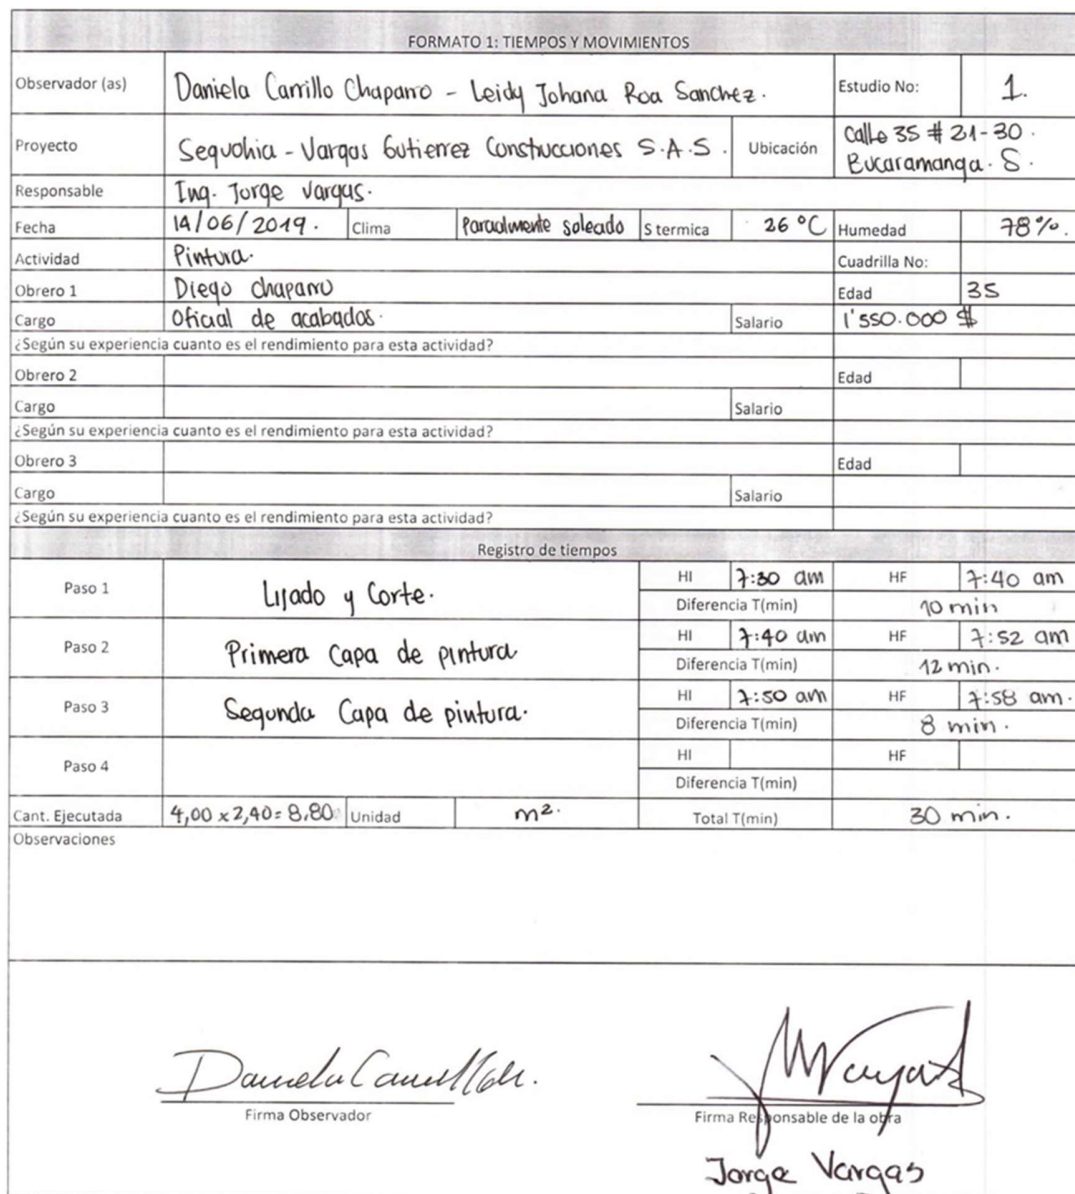 FORMATO 1: TIEMPOS Y MOVIMIENTOS
Observador (as) Daniela Carrillo Chaparro - Leidy Johana Roa Sanchez. Estudio No: 1.
Proyecto Sequohia - Vargas Gutierrez Construcciones S.A.S. Ubicación Calle 35 # 21-30. Bucaramanga. S.
Responsable Ing. Jorge Vargas.
Fecha 14/06/2019. Clima Parcialmente soleado S termica 26 °C Humedad 78%.
Actividad Pintura. Cuadrilla No:
Obrero 1 Diego chaparro Edad 35
Cargo Oficial de acabados. Salario 1'550.000 $
¿Según su experiencia cuanto es el rendimiento para esta actividad?
Obrero 2 Edad
Cargo Salario
¿Según su experiencia cuanto es el rendimiento para esta actividad?
Obrero 3 Edad
Cargo Salario
¿Según su experiencia cuanto es el rendimiento para esta actividad?
Registro de tiempos
Paso 1 Lijado y Corte. HI 7:30 am HF 7:40 am
Diferencia T(min) 10 min
Paso 2 Primera Capa de pintura. HI 7:40 am HF 7:52 am
Diferencia T(min) 12 min.
Paso 3 Segunda Capa de pintura. HI 7:50 am HF 7:58 am.
Diferencia T(min) 8 min.
Paso 4 HI HF
Diferencia T(min)
Cant. Ejecutada 4,00 x 2,40 = 8,80 Unidad m². Total T(min) 30 min.
Observaciones
Daniela Carrillo Ch.
Firma Observador
JVargas
Firma Responsable de la obra
Jorge Vargas